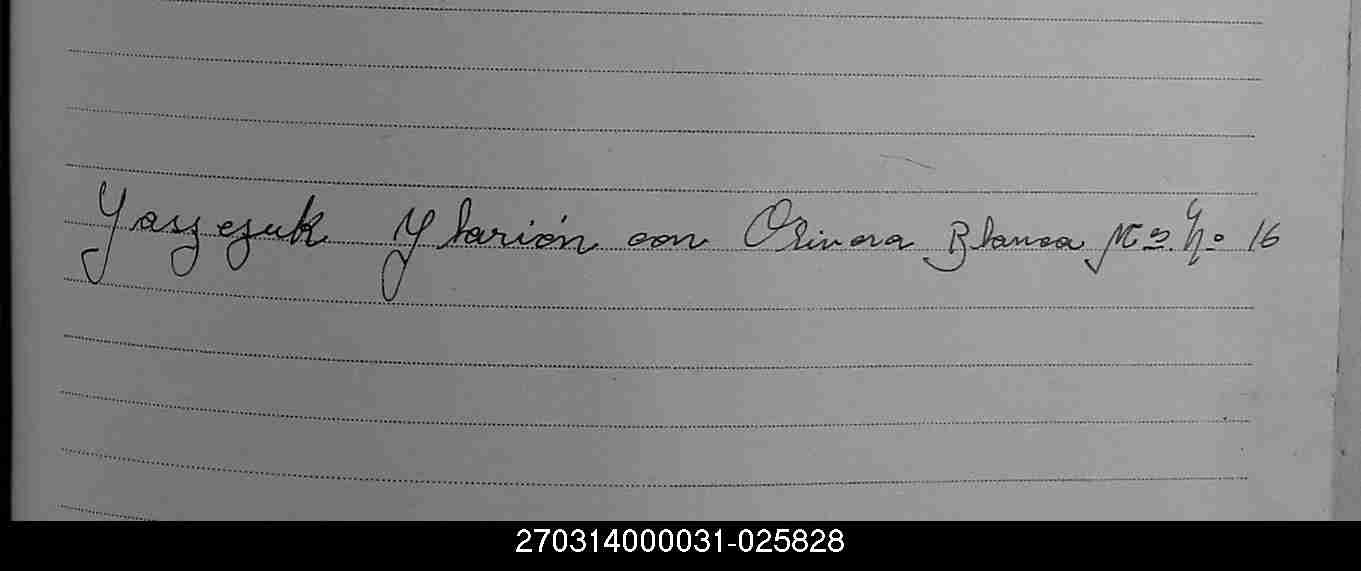 Yaszezuk Ylarión con Olivera Blanca Mo. No 16
270314000031-025828